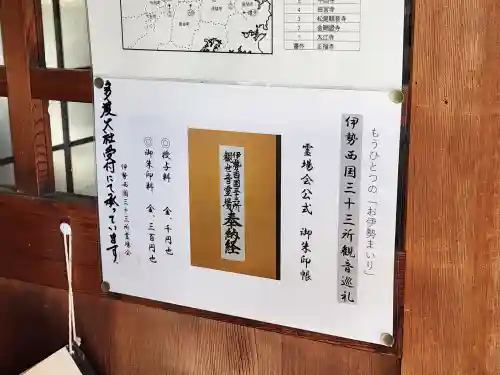 田宮寺
松阪観音寺
金剛證寺
太江寺
正福寺
もうひとつの「お伊勢まいり」
伊勢西国三十三所観音巡礼
霊場会公式 御朱印帳
伊勢西国三十三所
観世音霊場
奉納経
◎授与料 金、千円也
◎御朱印料 金、三百円也
多度大社受付にて承っています。
伊勢西国三十三所霊場会